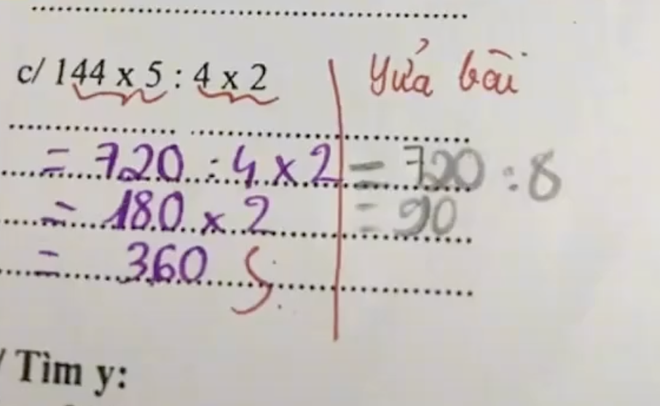 c/ 144 x 5 : 4 x 2
= 720 : 4 x 2
= 180 x 2
= 360 S
Sửa bài
= 720 : 8
= 90
/ Tìm y: